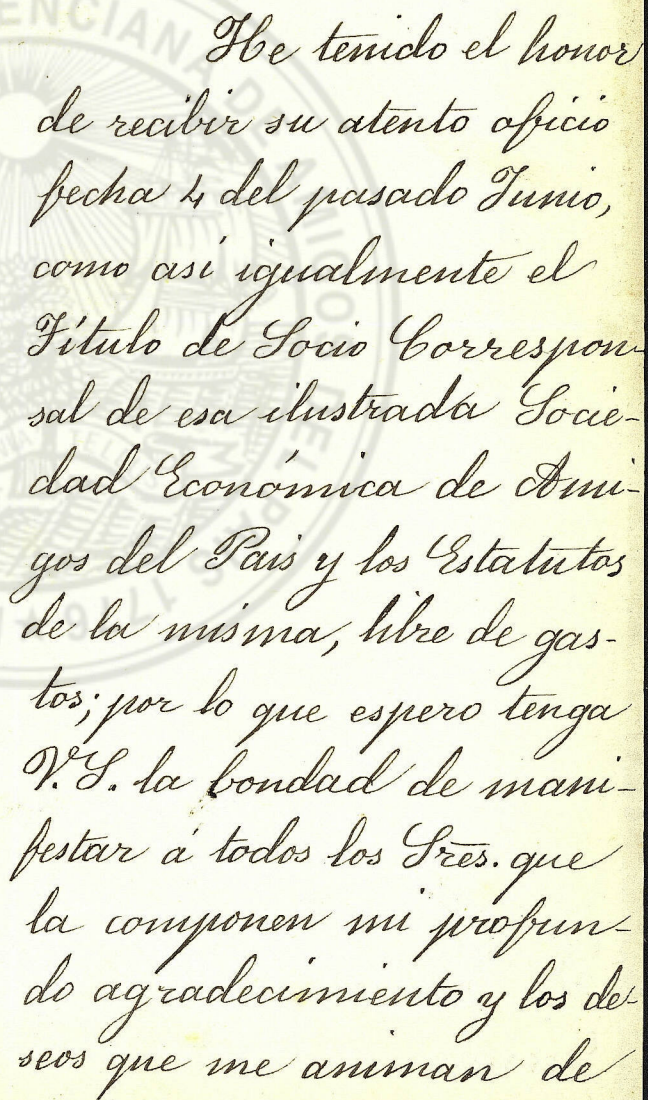 He tenido el honor
de recibir su atento oficio
fecha 4 del pasado Junio,
como así igualmente el
Título de Socio Correspon-
sal de esa ilustrada Socie-
dad Económica de Ami-
gos del Pais y los Estatutos
de la misma, libre de gas-
tos; por lo que espero tenga
V.S. la bondad de mani-
festar á todos los Sres. que
la componen mi profun-
do agradecimiento y los de-
seos que me animan de